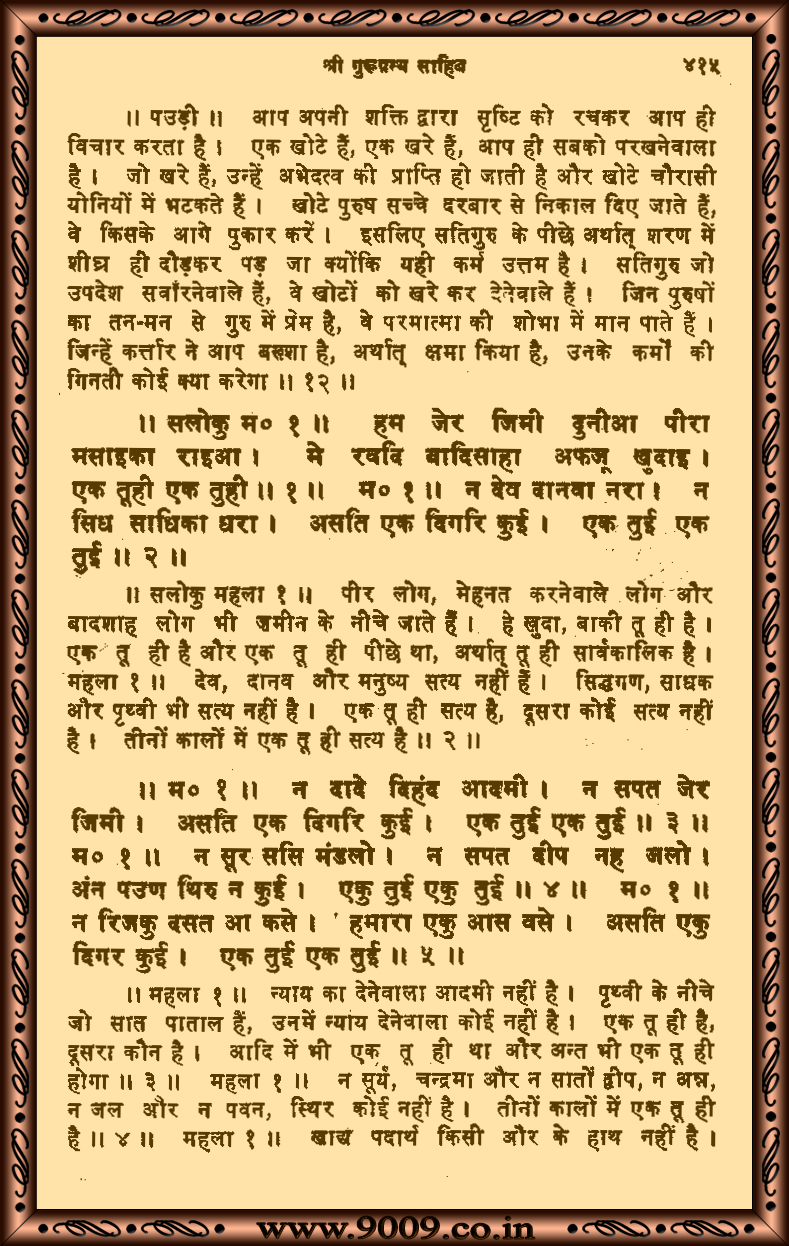 श्री गुरूग्रन्थ साहिब ४१५
।। पउड़ी ।। आप अपनी शक्ति द्वारा सृष्टि को रचकर आप ही
विचार करता है। एक खोटे हैं, एक खरे हैं, आप ही सबको परखनेवाला
है। जो खरे हैं, उन्हें अभेदत्व की प्राप्ति हो जाती है और खोटे चौरासी
योनियों में भटकते हैं। खोटे पुरुष सच्चे दरबार से निकाल दिए जाते हैं,
वे किसके आगे पुकार करें। इसलिए सतिगुरु के पीछे अर्थात् शरण में
शीघ्र ही दौड़कर पड़ जा क्योंकि यही कर्म उत्तम है। सतिगुरु जो
उपदेश सवाँरनेवाले हैं, वे खोटों को खरे कर देनेवाले हैं। जिन पुरुषों
का तन-मन से गुरु में प्रेम है, वे परमात्मा की शोभा में मान पाते हैं।
जिन्हें कर्त्तार ने आप बख्शा है, अर्थात् क्षमा किया है, उनके कर्मों की
गिनती कोई क्या करेगा ।। १२ ।।
।। सलोकु म० १ ।। हम जेर जिमी दुनीआ पीरा
मसाइका राइआ। मे रवदि बादिसाहा अफजू खुदाइ।
एक तूही एक तुही ।। १ ।। म० १ ।। न देव दानवा नरा। न
सिध साधिका धरा। असति एक दिगरि कुई। एक तुई एक
तुई ।। २ ।।
।। सलोकु महला १ ।। पीर लोग, मेहनत करनेवाले लोग और
बादशाह लोग भी जमीन के नीचे जाते हैं। हे खुदा, बाकी तू ही है।
एक तू ही है और एक तू ही पीछे था, अर्थात् तू ही सार्वकालिक है।
महला १ ।। देव, दानव और मनुष्य सत्य नहीं हैं। सिद्धगण, साधक
और पृथ्वी भी सत्य नहीं है। एक तू ही सत्य है, दूसरा कोई सत्य नहीं
है। तीनों कालों में एक तू ही सत्य है ।। २ ।।
।। म० १ ।। न दादे दिहंद आदमी। न सपत जेर
जिमी। असति एक दिगरि कुई। एक तुई एक तुई ।। ३ ।।
म० १ ।। न सूर ससि मंडलो। न सपत दीप नह जलो।
अंन पउण थिरु न कुई। एकु तुई एकु तुई ।। ४ ।। म० १ ।।
न रिजकु दसत आ कसे। हमारा एकु आस वसे। असति एकु
दिगर कुई। एक तुई एक तुई ।। ५ ।।
।। महला १ ।। न्याय का देनेवाला आदमी नहीं है। पृथ्वी के नीचे
जो सात पाताल हैं, उनमें न्याय देनेवाला कोई नहीं है। एक तू ही है,
दूसरा कौन है। आदि में भी एक तू ही था और अन्त भी एक तू ही
होगा ।। ३ ।। महला १ ।। न सूर्य, चन्द्रमा और न सातों द्वीप, न अन्न,
न जल और न पवन, स्थिर कोई नहीं है। तीनों कालों में एक तू ही
है ।। ४ ।। महला १ ।। खाद्य पदार्थ किसी और के हाथ नहीं है।
www.9009.co.in